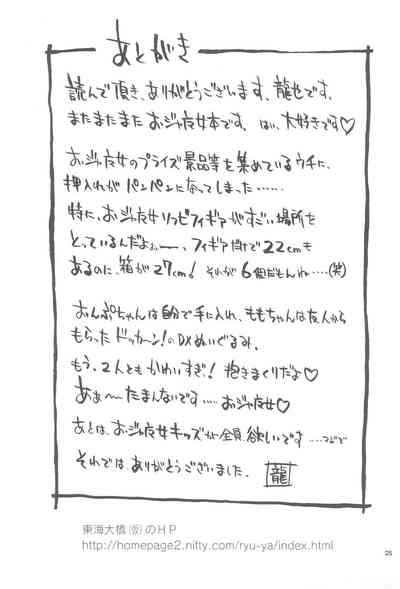 あとがき
読んで頂き、ありがとうございます、龍也です。
またまたまた おジャ魔女本です。はい、大好きです♡
おジャ魔女のプライズ景品等を集めているウチに、
押入れがパンパンになってしまった……
特に、おジャ魔女ソフビフィギアがすごい場所を
とっているんだよぉー、フィギア自体で22cmも
あるのに、箱が27cm! それが6個だもんね……(笑)
おんぷちゃんは自分で手に入れ、ももちゃんは友人から
もらったドッカ〜ン!のDXぬいぐるみ。
もう、2人ともかわいすぎ! 抱きまくりだよ♡
あぁ〜たまんないです……おジャ魔女♡
あとは、おジャ魔女キッズが全員欲しいです
それでは ありがとうございました。 龍
東海大橋(仮)のHP
http://homepage2.nifty.com/ryu-ya/index.html
25